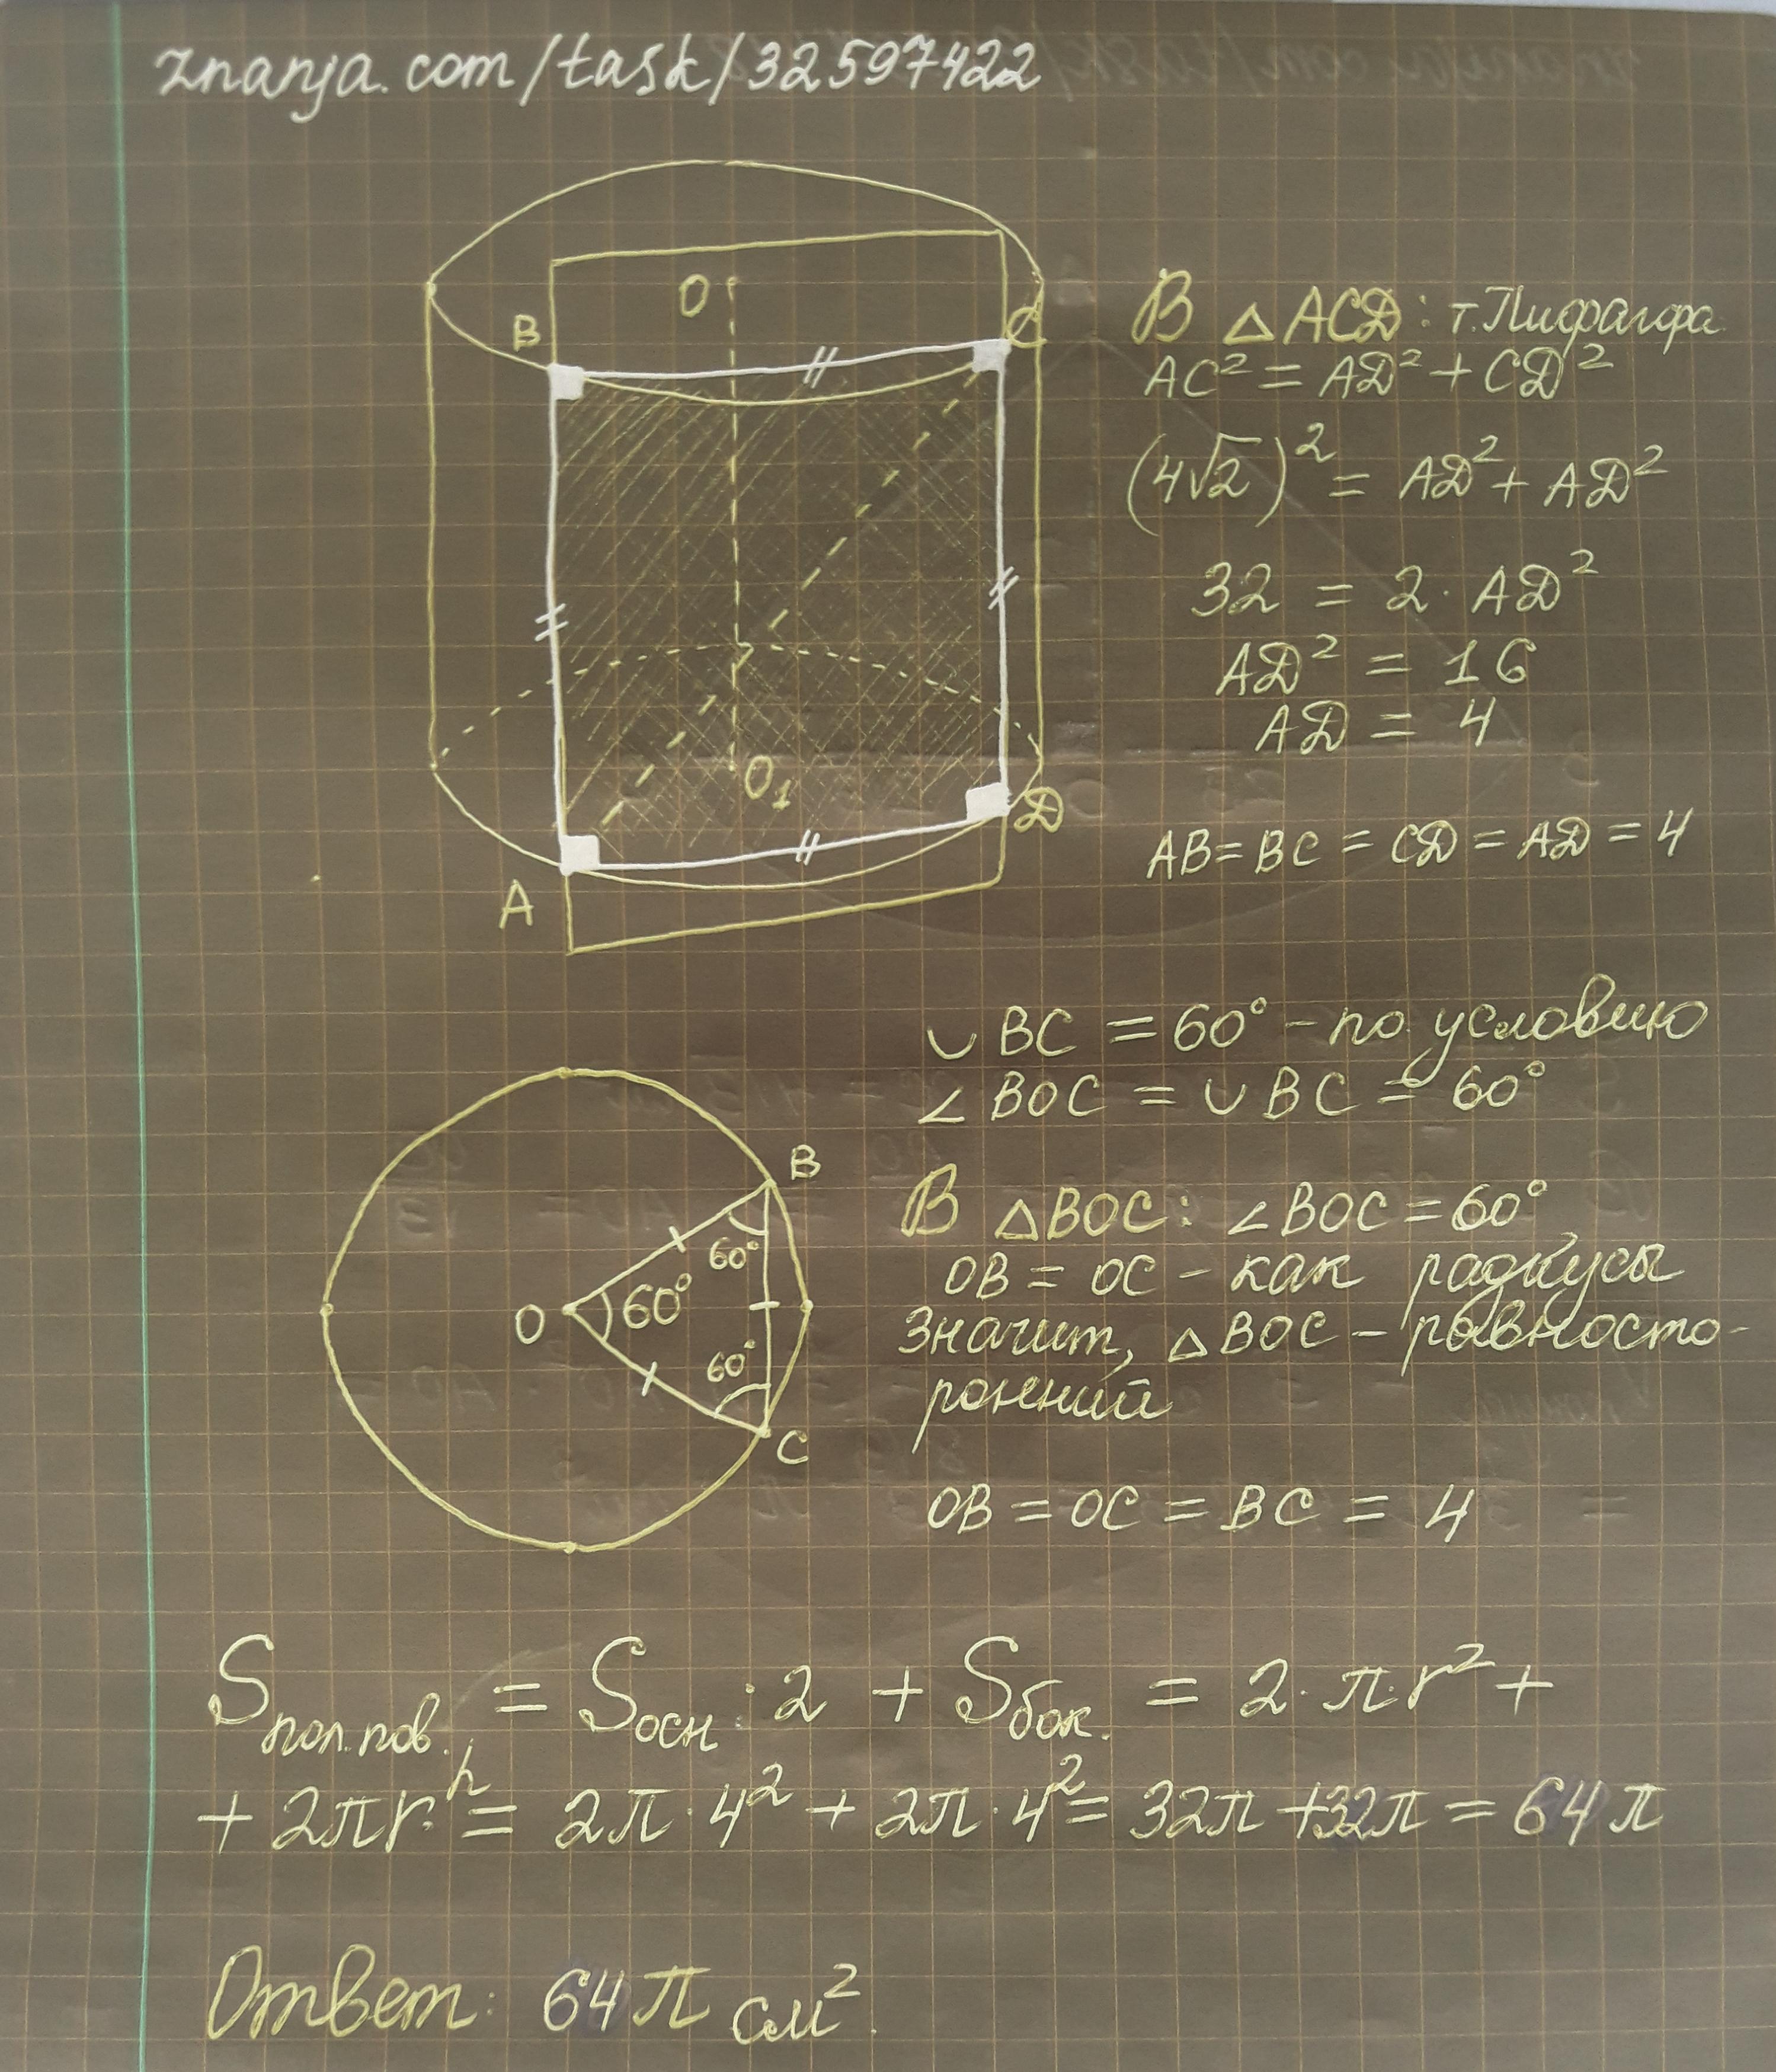 znanja.com/task/32597422
B
O
C
O₁
A
D
В △ACD: т. Пифагора
AC² = AD² + CD²
(4√2)² = AD² + AD²
32 = 2 · AD²
AD² = 16
AD = 4
AB = BC = CD = AD = 4
∪ BC = 60° – по условию
∠ BOC = ∪ BC = 60°
B
60°
O
60°
60°
C
В △BOC: ∠BOC = 60°
OB = OC – как радиусы
Значит, △BOC – равносто-
ронний
OB = OC = BC = 4
Sпол.пов. = Sосн · 2 + Sбок. = 2 · π · r² +
+ 2πr · h = 2π · 4² + 2π · 4² = 32π + 32π = 64π
Ответ: 64π см².